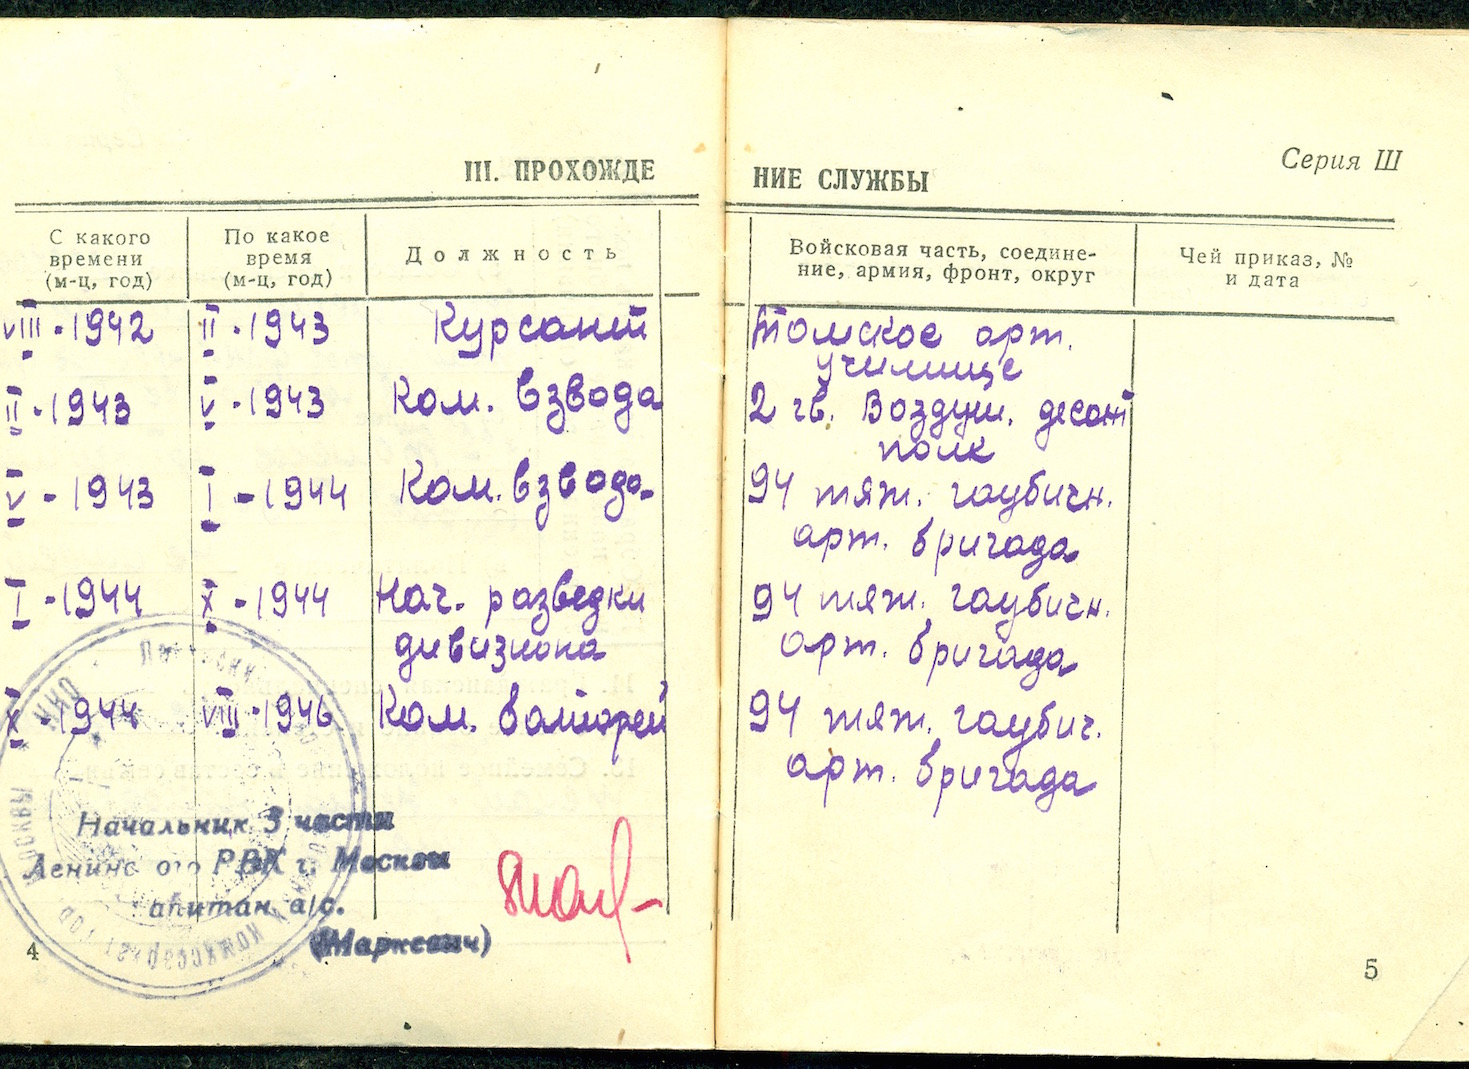 Серия Ш
III. ПРОХОЖДЕ НИЕ СЛУЖБЫ
С какого времени (м-ц, год)
По какое время (м-ц, год)
Должность
Войсковая часть, соедине-
ние, армия, фронт, округ
Чей приказ, №
и дата
VIII - 1942 II - 1943 Курсант Томское арт.
училище
II - 1943 V - 1943 Ком. взвода 2 гв. Воздуш. десант
полк
V - 1943 I - 1944 Ком. взвода 94 тяж. гаубичн.
арт. бригада
I - 1944 X - 1944 Нач. разведки 94 тяж. гаубичн.
дивизиона арт. бригада
X - 1944 VIII - 1946 Ком. батареи 94 тяж. гаубич.
арт. бригада
Начальник 3 части
РВК г. Москвы
а/с.
4
5